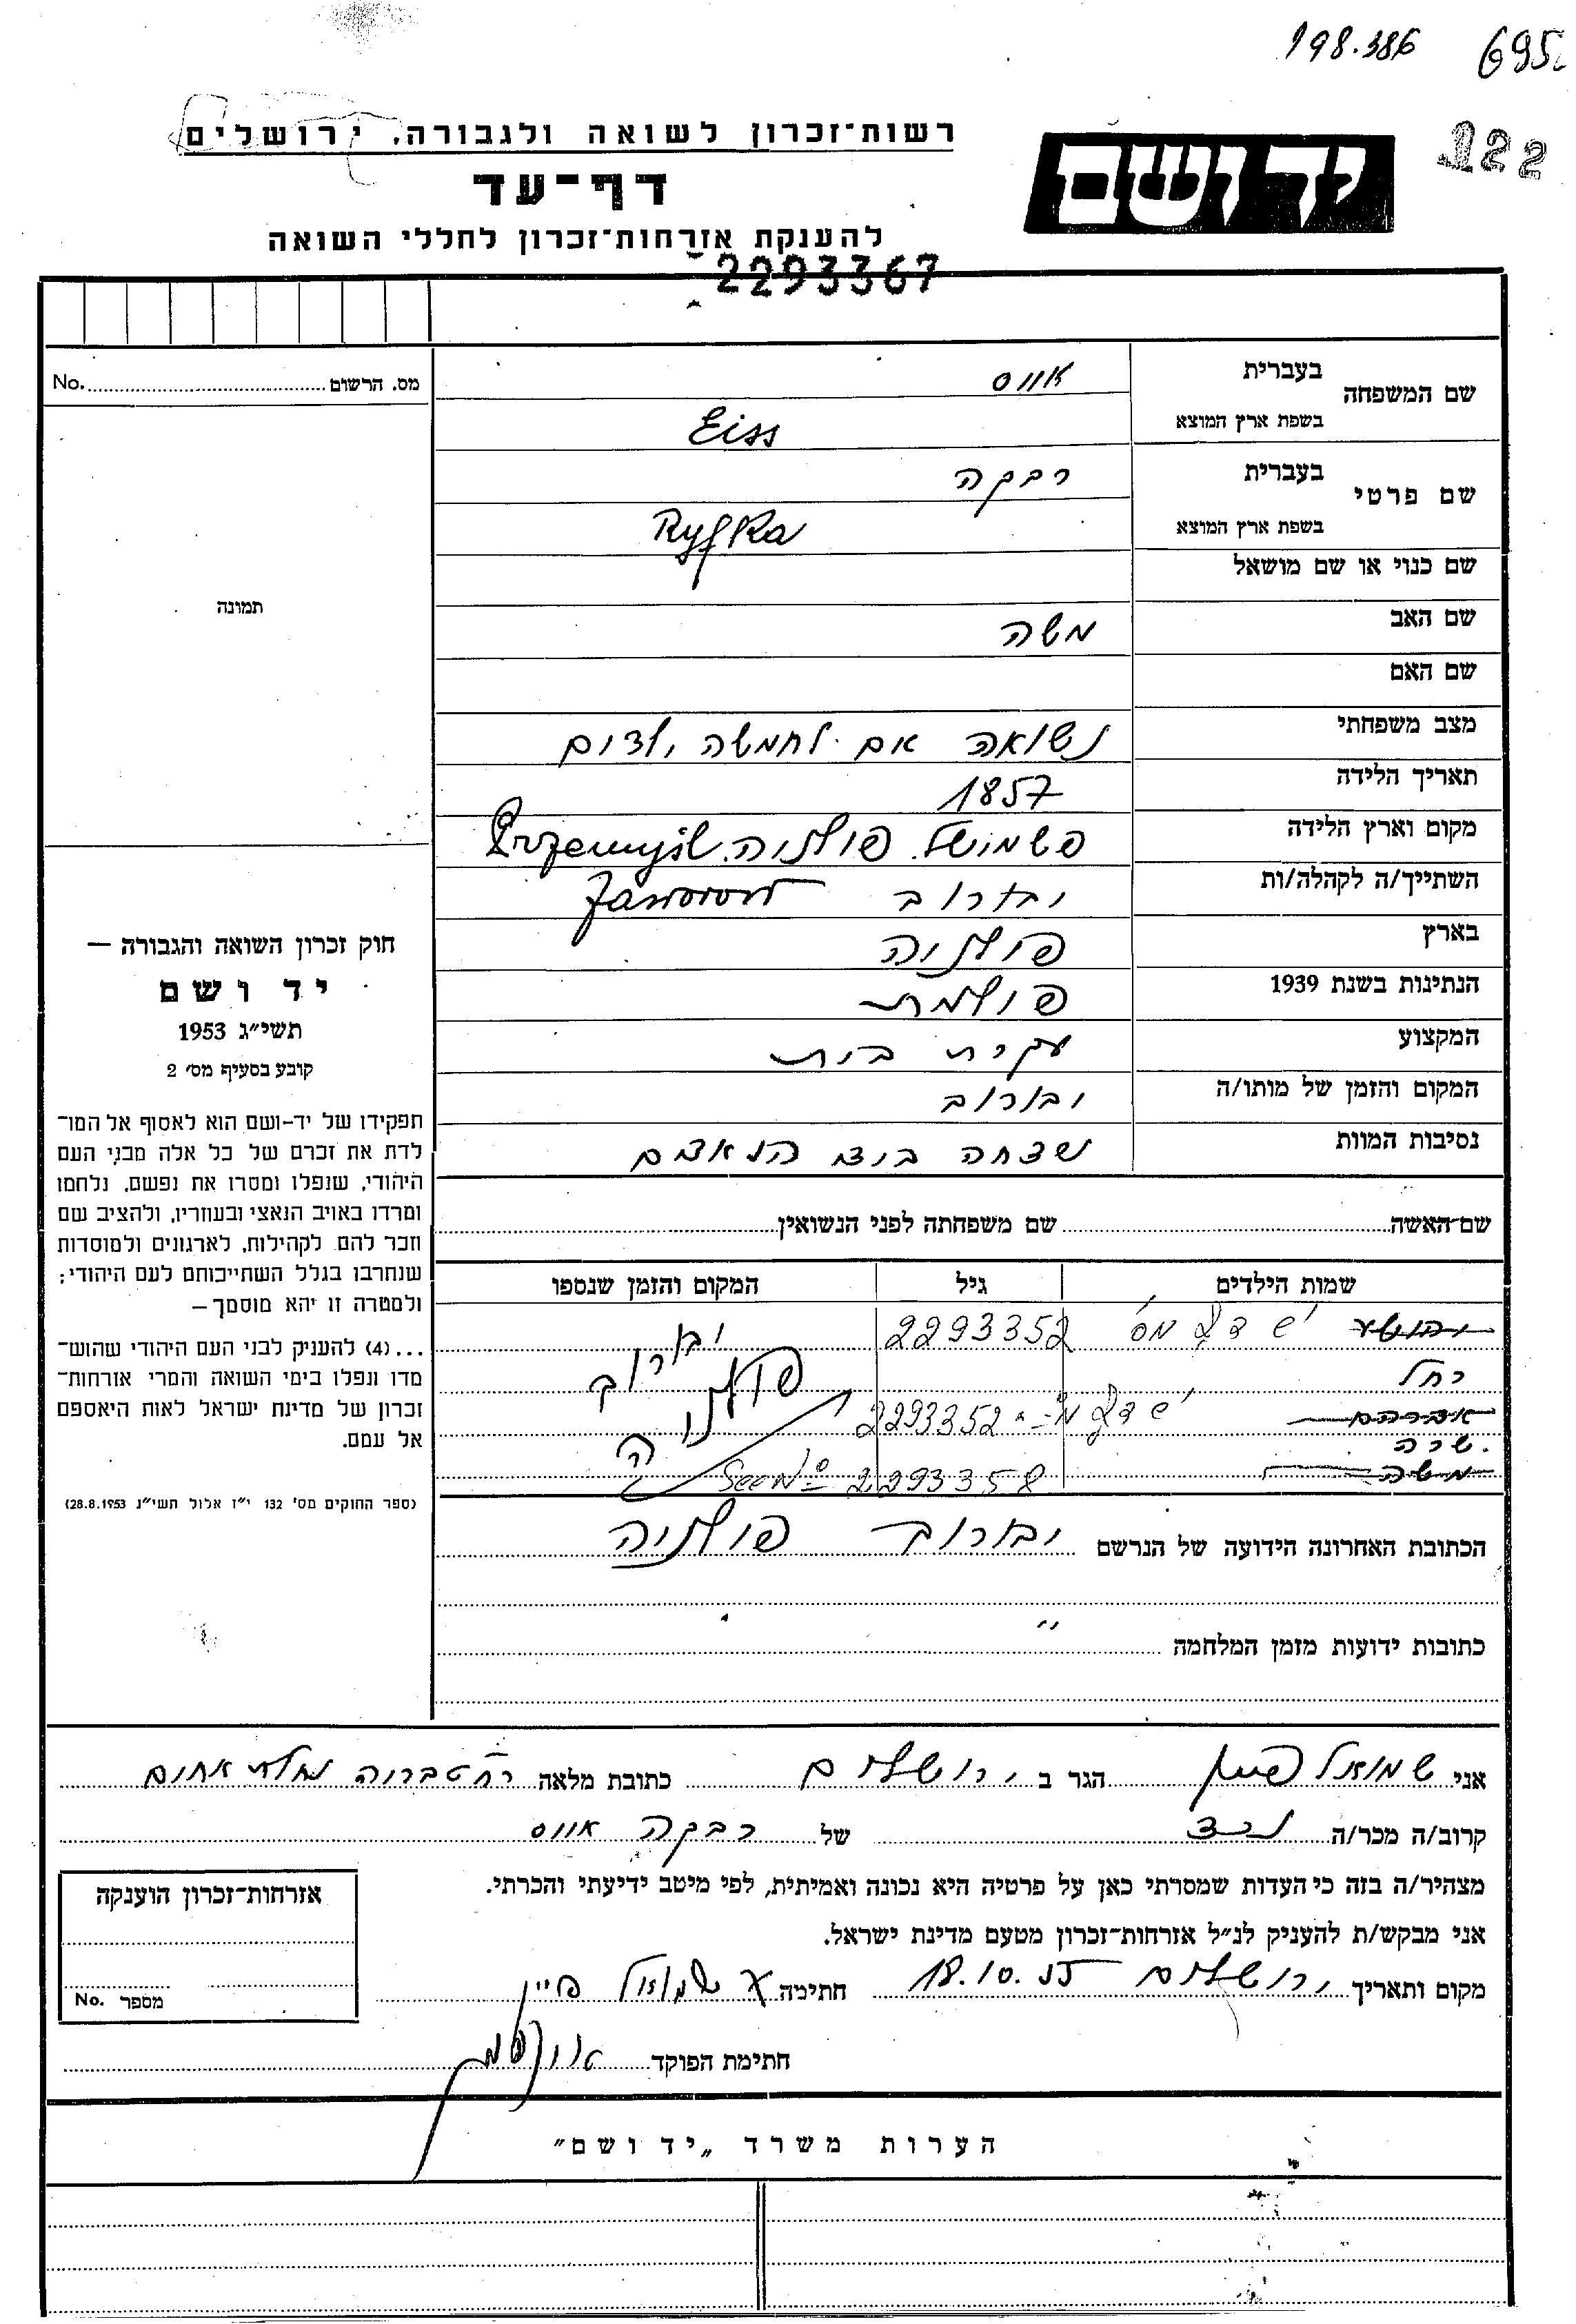 198.386 695
122
יד ושם
רשות־זכרון לשואה ולגבורה, ירושלים
דף־עד
להענקת אזרחות־זכרון לחללי השואה
2293367
מס. הרשום No.
תמונה
חוק זכרון השואה והגבורה —
יד ושם
תשי״ג 1953
קובע בסעיף מס׳ 2
תפקידו של יד-ושם הוא לאסוף אל המו־
לדת את זכרם של כל אלה מבני העם
היהודי, שנפלו ומסרו את נפשם, נלחמו
ומרדו באויב הנאצי ובעוזריו, ולהציב שם
וזכר להם, לקהילות, לארגונים ולמוסדות
שנחרבו בגלל השתייכותם לעם היהודי;
ולמטרה זו יהא מוסמך—
...(4) להעניק לבני העם היהודי שהוש־
מדו ונפלו בימי השואה והמרי אזרחות־
זכרון של מדינת ישראל לאות היאספם
אל עמם.
(ספר החוקים מס׳ 132 י״ז אלול תשי״ג 28.8.1953)
שם המשפחה בעברית אייס
בשפת ארץ המוצא Eiss
שם פרטי בעברית רבקה
בשפת ארץ המוצא Ryfka
שם כנוי או שם מושאל
שם האב משה
שם האם
מצב משפחתי נשואה אם לחמשה ילדים
תאריך הלידה 1857
מקום וארץ הלידה פשמישל פולניה Przemyśl
השתייך/ה לקהלה/ות יבורוב Jaworow
בארץ פולניה
הנתינות בשנת 1939 פולנית
המקצוע עקרת בית
המקום והזמן של מותו/ה יבורוב
נסיבות המוות נשצחה בידי הנאצים
שם־האשה שם משפחתה לפני הנשואין
שמות הילדים גיל המקום והזמן שנספו
יש דף מס׳ 2293352 יבורוב
רחל פולניה
אברהם יש דף מ׳ 2293352
שרה
משה See No 2293358
הכתובת האחרונה הידועה של הנרשם יבורוב פולניה
כתובות ידועות מזמן המלחמה ״
אני שמואל פיין הגר ב ירושלים כתובת מלאה רח טבריה נחלת אחים
קרוב/ה מכר/ה נכד של רבקה אייס
מצהיר/ה בזה כי העדות שמסרתי כאן על פרטיה היא נכונה ואמיתית, לפי מיטב ידיעתי והכרתי.
אני מבקש/ת להעניק לנ״ל אזרחות־זכרון מטעם מדינת ישראל.
מקום ותאריך ירושלים 18.10.55 חתימה שמואל פיין
חתימת הפוקד
אזרחות־זכרון הוענקה
מספר No.
הערות משרד „יד ושם״